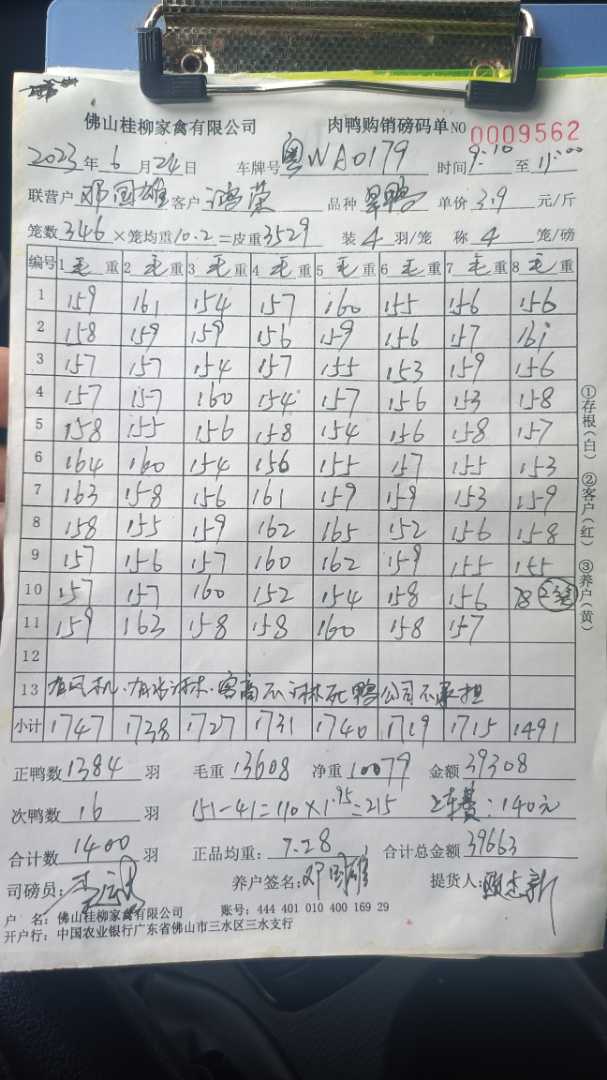 佛山桂柳家禽有限公司 肉鸭购销磅码单 NO 0009562
2023年 6月 24日 车牌号 粤WA0179 时间 9:10 至 11:00
联营户 邓国雄 客户 鸿荣 品种 旱鸭 单价 3.9 元/斤
笼数 346 ×笼均重 10.2 =皮重 3529 装 4 羽/笼 称 4 笼/磅
编号 1 毛 重 2 毛 重 3 毛 重 4 毛 重 5 毛 重 6 毛 重 7 毛 重 8 毛 重
1 159 161 154 157 160 155 156 156
2 158 159 159 156 159 156 157 161
3 157 157 154 157 155 153 159 156
4 157 157 160 154 157 156 153 158
5 158 155 156 158 154 156 158 157
6 164 160 154 156 155 157 155 153
7 163 158 156 161 159 159 153 159
8 158 155 159 162 165 152 156 158
9 157 156 157 160 162 159 155 155
10 157 157 160 152 154 158 156 78 2笼
11 159 163 158 158 160 158 157
12
13 有风机.有水淋.客商不淋死鸭公司不承担
小计 1747 1738 1727 1731 1740 1719 1715 1491
正鸭数 1384 羽 毛重 13608 净重 10079 金额 39308
次鸭数 16 羽 151-41=110×1.95=215 上车费:140元
合计数 1400 羽 正品均重: 7.28 合计总金额 39663
司磅员: 养户签名: 邓国雄 提货人:
户 名: 佛山桂柳家禽有限公司 账号: 444 401 010 400 169 29
开户行: 中国农业银行广东省佛山市三水区三水支行
①存根(白) ②客户(红) ③养户(黄)